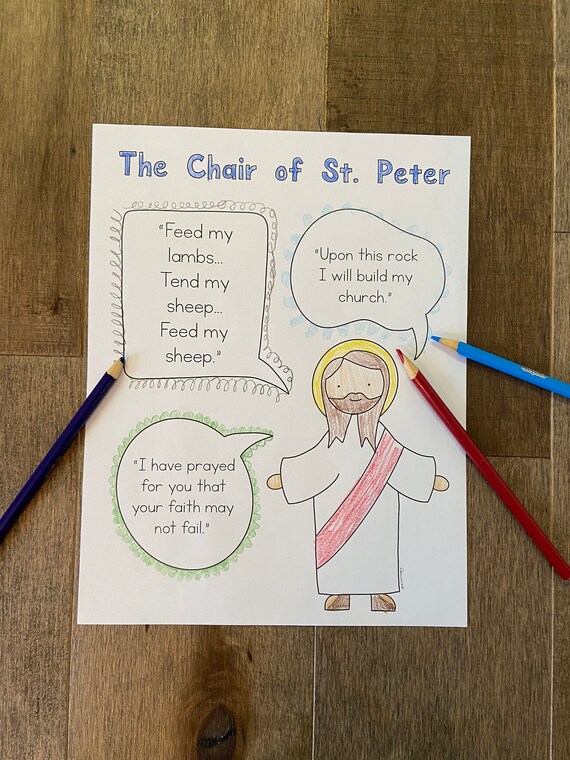 The Chair of St. Peter
"Feed my
lambs...
Tend my
sheep...
Feed my
sheep."
"Upon this rock
I will build my
church."
"I have prayed
for you that
your faith may
not fail."